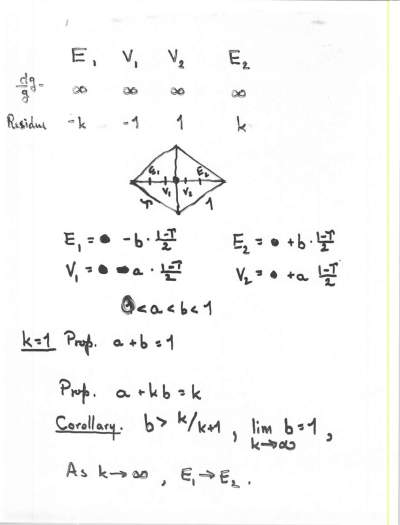 E₁ V₁ V₂ E₂
dg/g = ∞ ∞ ∞ ∞
Residue -k -1 1 k
E₁ E₂
V₁ V₂
τ 1
E₁ = • -b · (1-τ)/2 E₂ = • +b · (1-τ)/2
V₁ = • - a · (1-τ)/2 V₂ = • +a (1-τ)/2
0 < a < b < 1
k=1 Prop. a + b = 1
Prop. a + kb = k
Corollary. b > k/k+1 , lim b = 1 ,
k→∞
As k → ∞ , E₁ → E₂ .